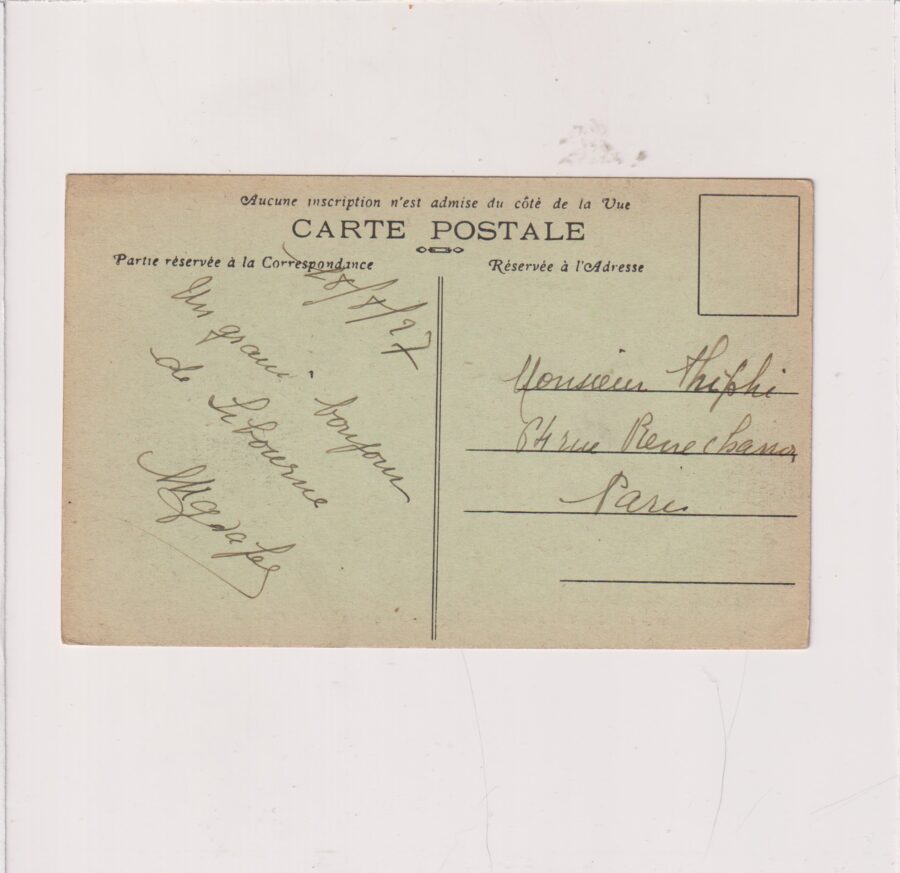 Aucune inscription n'est admise du côté de la Vue
CARTE POSTALE
Partie réservée à la Correspondance
Réservée à l'Adresse
18/8/27
Un grand bonjour
de Libourne
Monsieur
64 rue Rene
Paris